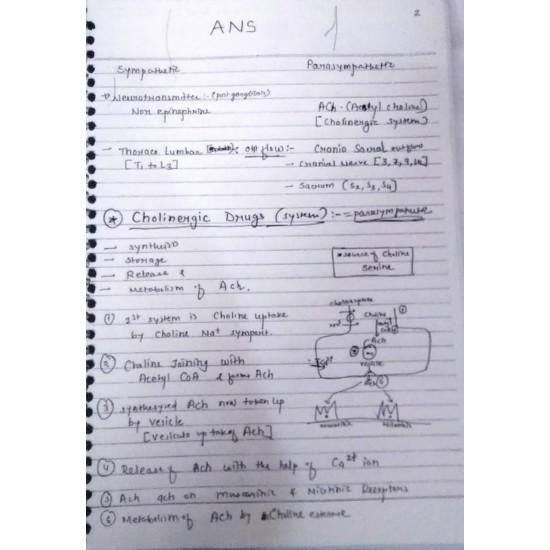 2
ANS
Sympathetic
Parasympathetic
Neurotransmitter :- (post ganglionic)
Nor epinephrine
ACh - (Acetyl choline)
[Cholinergic system]
→ Thoraco Lumbar out flow :-
[T1 to L3]
Cranio Sacral outflow
→ Cranial Nerve [3, 7, 9, 10]
→ Sacrum (S2, S3, S4)
* Cholinergic Drugs (system) :- = parasympathetic
→ synthesis
→ storage
→ Release &
→ Metabolism of Ach.
* source of Choline
Serine
① 1st system is Choline uptake
by Choline Na+ symport.
② Choline Joining with
Acetyl CoA & forms Ach
③ synthesyzed Ach now taken up
by vesicle
[vesicular uptake of Ach]
Choline
Ach
vesicle
Ach
Muscarinic
Nicotinic
④ Release of Ach with the help of Ca2+ ion
⑤ Ach act on muscarinic & Nicotinic Receptors
⑥ Metabolism of Ach by Choline esterase